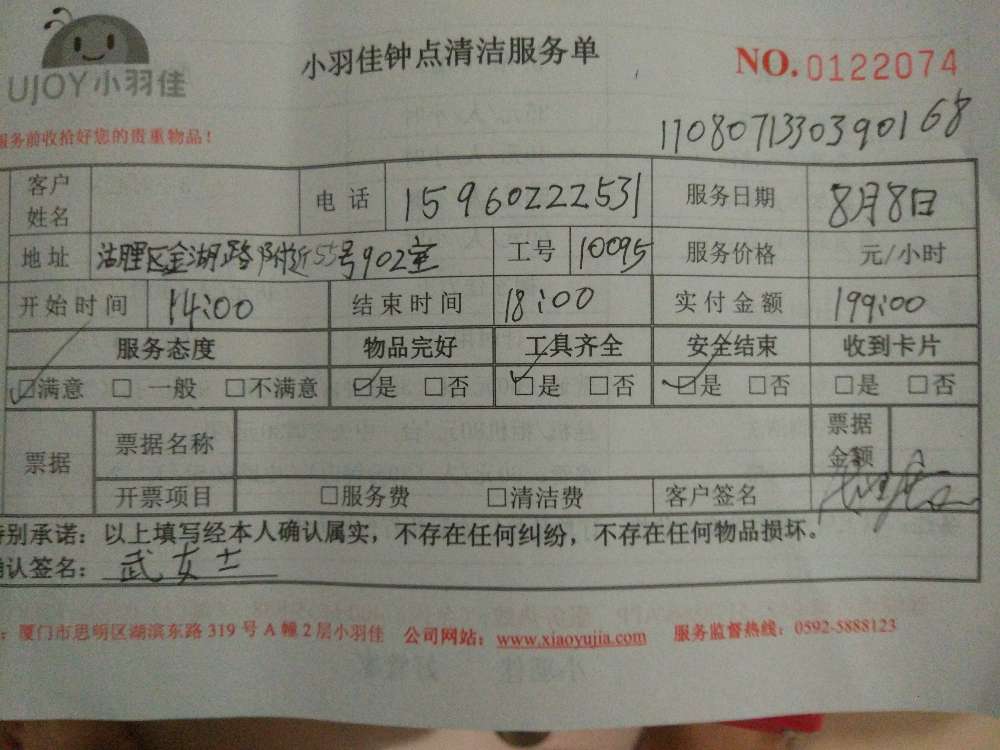 UJOY小羽佳
小羽佳钟点清洁服务单
NO.0122074
服务前收拾好您的贵重物品!
11080713303390168
客户姓名 电话 15960222531 服务日期 8月8日
地址 湖路附近55号902室 工号 10095 服务价格 元/小时
开始时间 14:00 结束时间 18:00 实付金额 199:00
服务态度 物品完好 工具齐全 安全结束 收到卡片
☑满意 □一般 □不满意 ☑是 □否 ☑是 □否 ☑是 □否 □是 □否
票据 票据名称 票据金额
开票项目 □服务费 □清洁费 客户签名
特别承诺:以上填写经本人确认属实,不存在任何纠纷,不存在任何物品损坏。
确认签名:武女士
:厦门市思明区湖滨东路319号A幢2层小羽佳 公司网站:www.xiaoyujia.com 服务监督热线:0592-5888123